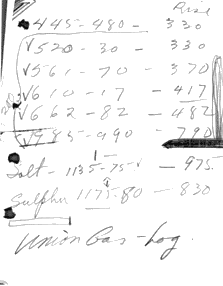 Rise
445 - 480 - 330
√520 - 30 - 330
√561 - 70 - 370
√610 - 17 - 417
√662 - 82 - 482
√985 - 990 - 790
Salt - 1135 - 75 √ - 975
Sulphur 1175.80 - 830
Union Gas - Log.